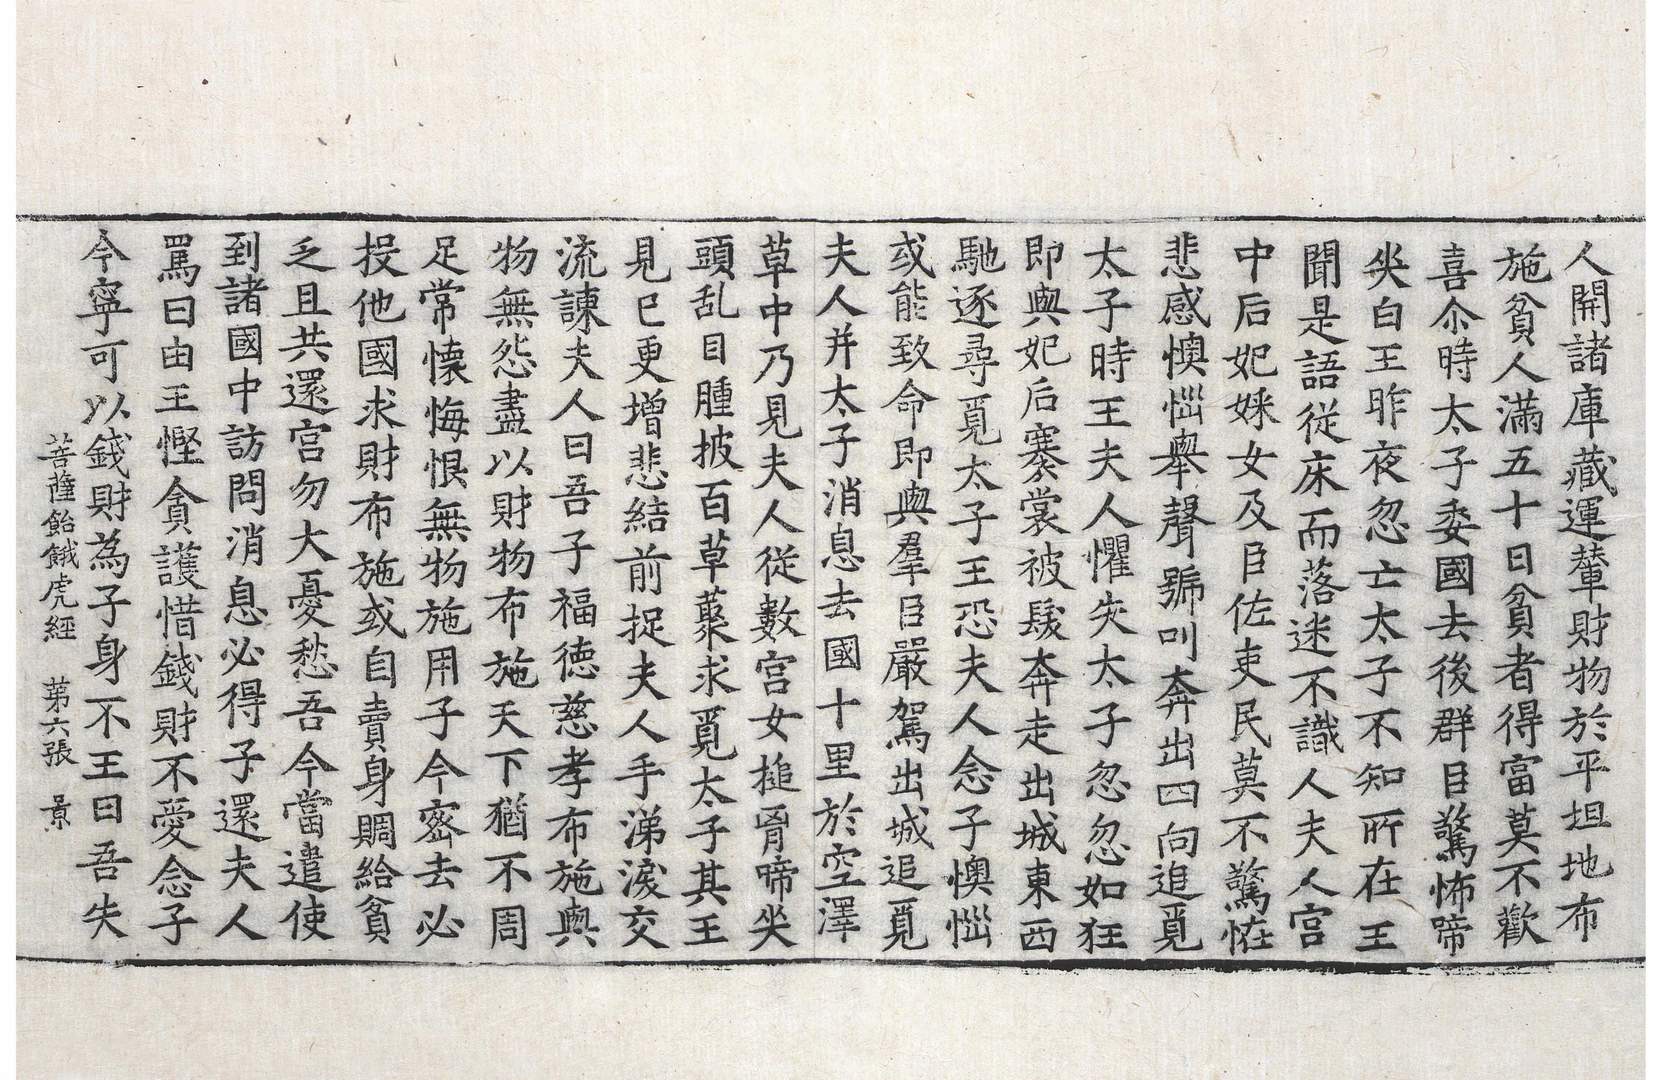 人開諸庫藏運輦財物於平坦地布
施貧人滿五十日貧者得富莫不歡
喜尒時太子委國去後群臣驚怖啼
哭白王昨夜忽亡太子不知所在王
聞是語從床而落迷不識人夫人宮
中后妃婇女及臣佐吏民莫不驚恠
悲感懊惱舉聲號叫奔出四向追覓
太子時王夫人懼失太子忽忽如狂
即與妃后褰裳被髮奔走出城東西
馳逐尋覓太子王恐夫人念子懊惱
或能致命即與羣臣嚴駕出城追覓
夫人并太子消息去國十里於空澤
草中乃見夫人從數宮女搥胷啼哭
頭乱目腫披百草藂求覓太子其王
見已更增悲結前捉夫人手涕淚交
流諫夫人曰吾子福德慈孝布施與
物無怨盡以財物布施天下猶不周
足常懷悔恨無物施用子今密去必
投他國求財布施或自賣身賙給貧
乏且共還宮勿大憂愁吾今當遣使
到諸國中訪問消息必得子還夫人
罵曰由王慳貪護惜錢財不愛念子
今寧可以錢財為子身不王曰吾失
菩薩飴餓虎經 第六張 景